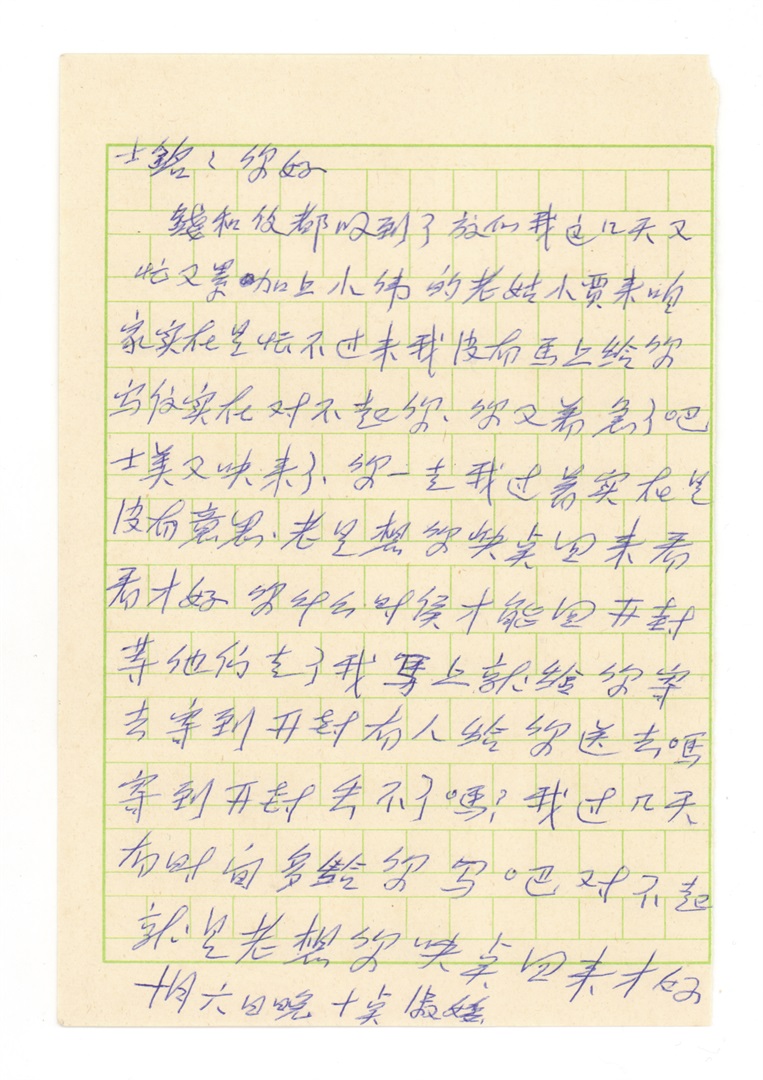 士銘：你好
錢和仪都收到了放心我这几天又
忙又累加上小伟的老姑小賈来咱
家实在是忙不过来我没有馬上给你
写仪实在对不起你、你又着急了吧
士美又快来了、你一走我过着实在是
没有意思、老是想你快点回来看
看才好你什么时侯才能回开封
等他们走了我馬上就给你寄
去寄到开封有人给你送去嗎
寄到开封丢不了嗎？我过几天
有时间多给你写吧对不起
就是老想你快点回来才好
十月六日晚十点淑